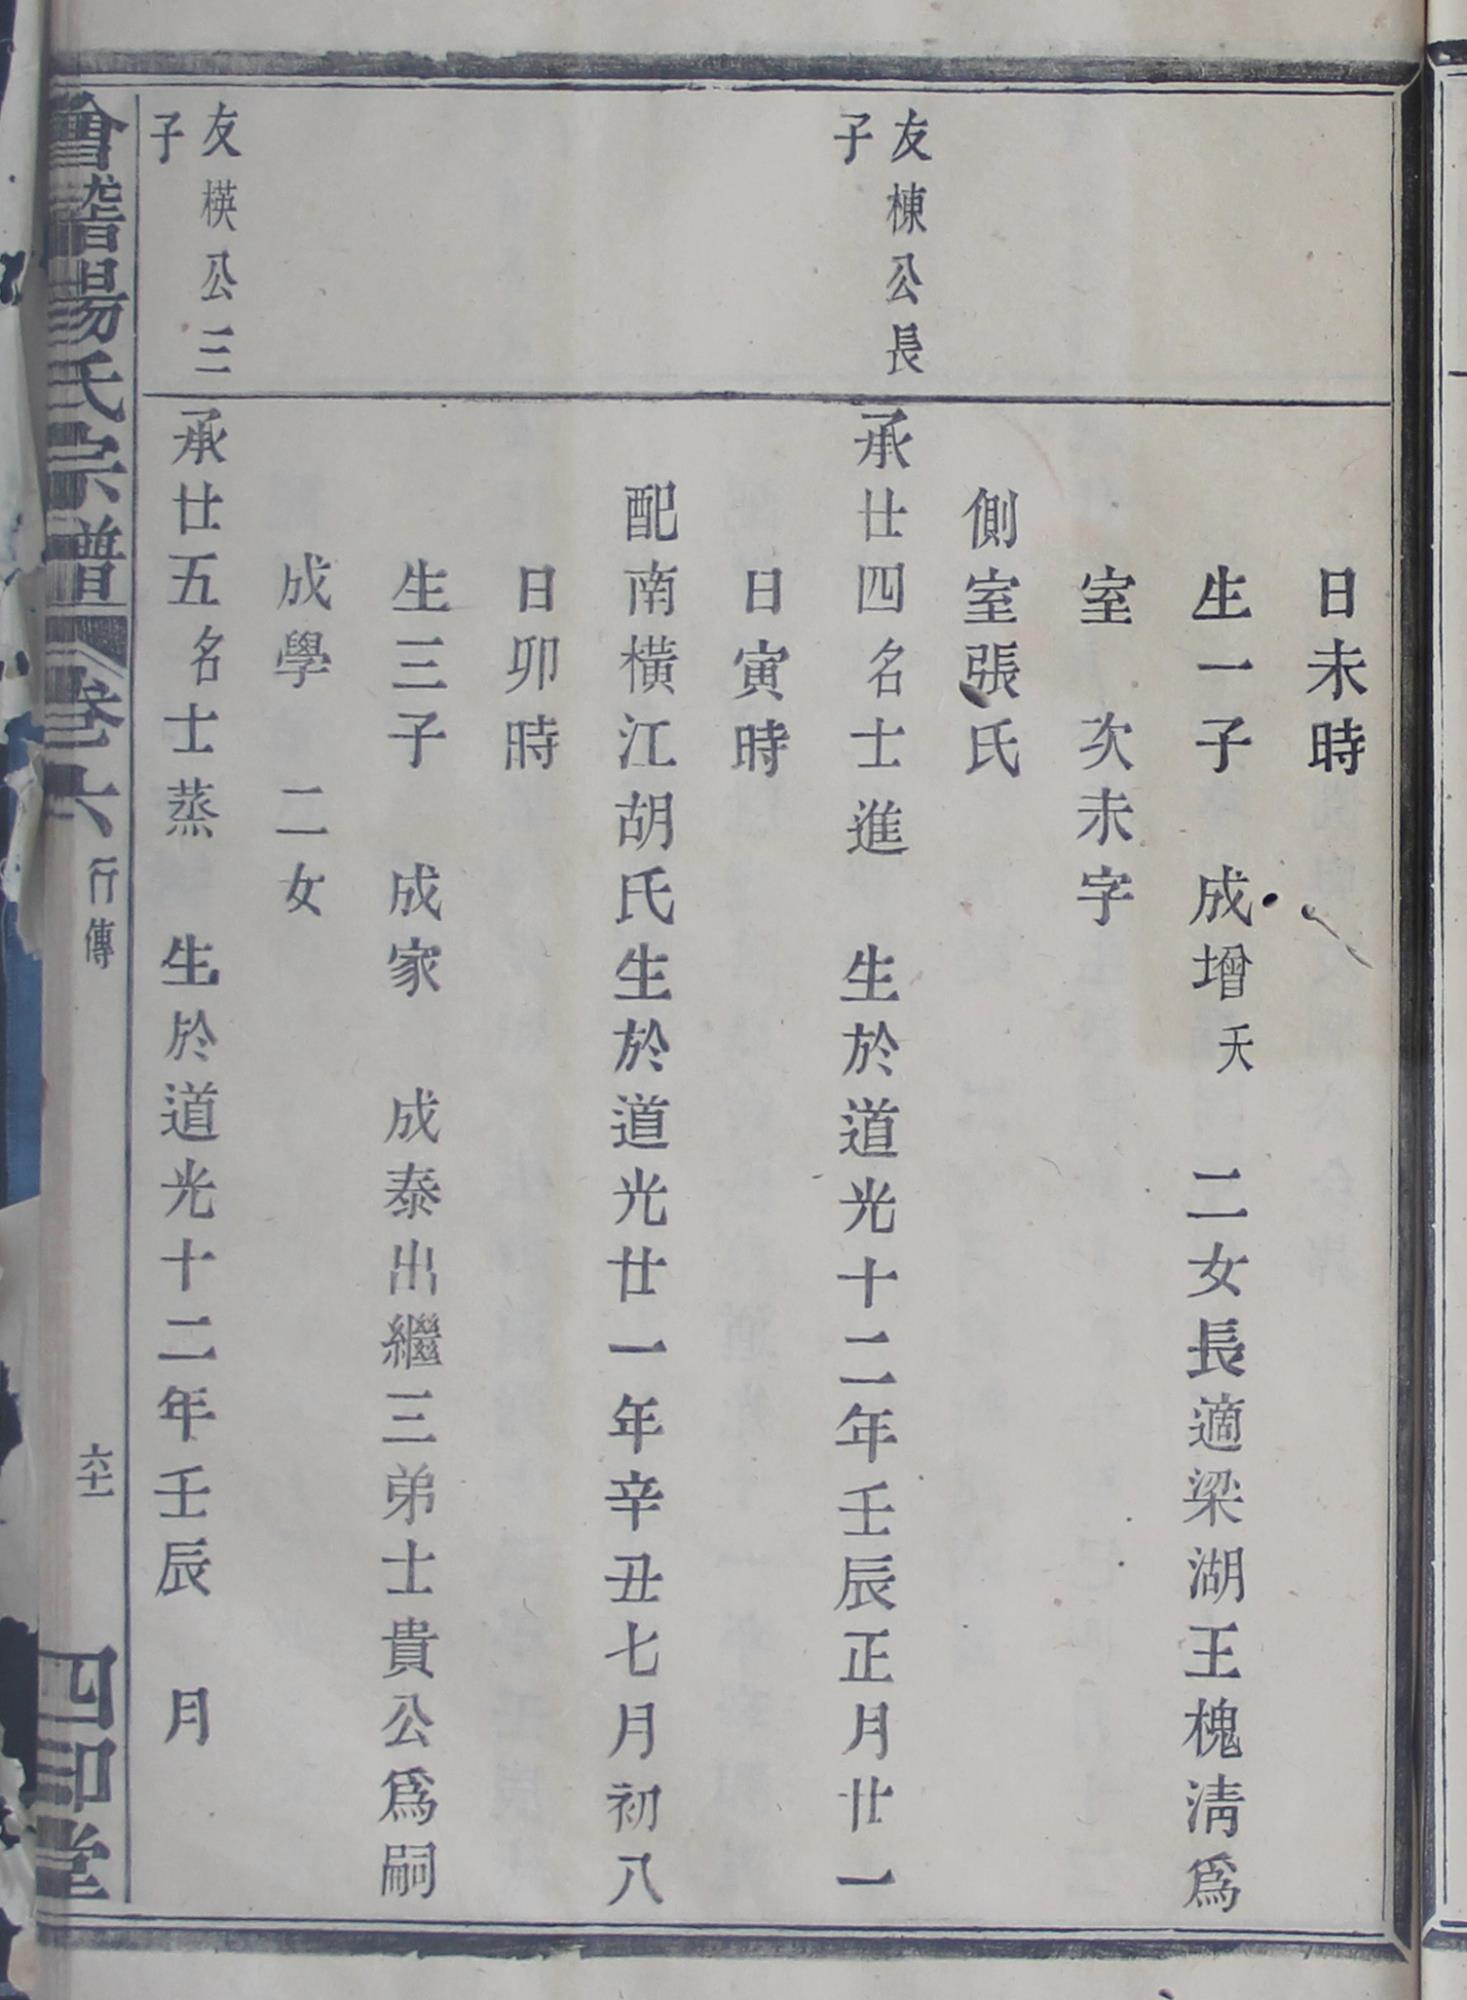 日未時
生一子　成增夭　二女長適梁湖王槐淸爲
室　次未字
側室張氏
友棟公長
子
承廿四名士進　生於道光十二年壬辰正月廿一
日寅時
配南橫江胡氏生於道光廿一年辛丑七月初八
日卯時
生三子　成家　成泰出繼三弟士貴公爲嗣
成學　二女
友楧公三
子
承廿五名士蒸　生於道光十二年壬辰　月
會嵇楊氏宗譜　卷六　行傳　六十一　四印堂